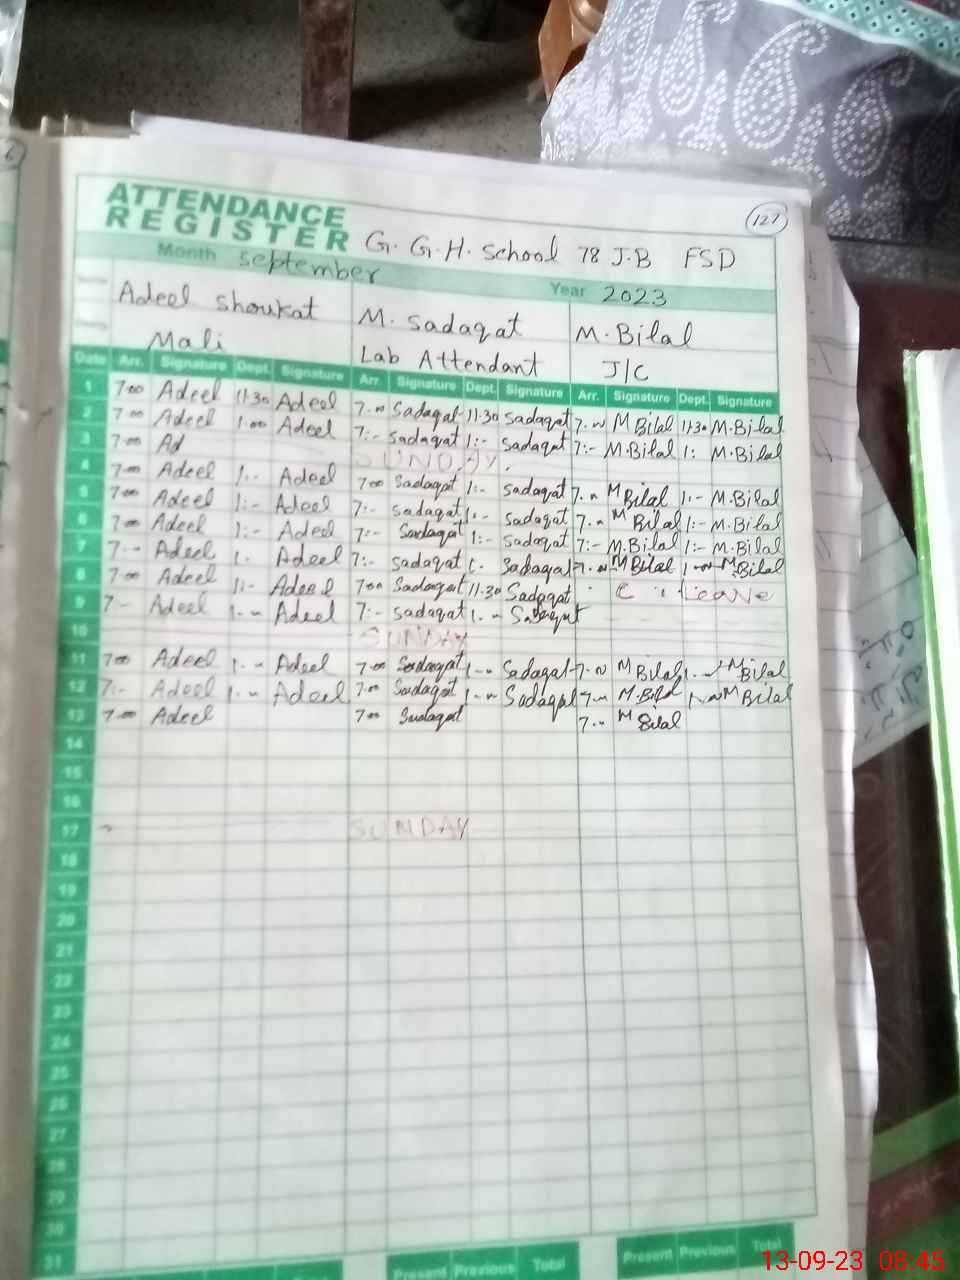 6
ATTENDANCE
REGISTER G. G.H. School 78 J.B FSD 127
Month September Year 2023
Adeel Shoukat M. Sadaqat M. Bilal
Mali Lab Attendant J/C
Date Arr. Signature Dept. Signature Arr. Signature Dept. Signature Arr. Signature Dept. Signature
1 7-00 Adeel 11-30 Adeel 7.00 Sadaqat 11-30 Sadaqat 7.00 M Bilal 11-30 M.Bilal
2 7-00 Adeel 1.00 Adeel 7:- Sadaqat 1:- Sadaqat 7:- M.Bilal 1: M.Bilal
3 7-00 Ad SUNDAY
4 7-00 Adeel 1.- Adeel 7-00 Sadaqat 1:- Sadaqat 7.00 M Bilal 1:- M.Bilal
5 7-00 Adeel 1:- Adeel 7:- Sadaqat 1:- Sadaqat 7.00 M Bilal 1:- M.Bilal
6 7-00 Adeel 1:- Adeel 7:- Sadaqat 1:- Sadaqat 7:- M.Bilal 1:- M.Bilal
7 7:- Adeel 1.- Adeel 7:- Sadaqat 1. Sadaqat 7.00 M Bilal 1.00 M.Bilal
8 7-00 Adeel 1:- Adeel 7-00 Sadaqat 11-30 Sadaqat C. Leave
9 7- Adeel 1.- Adeel 7:- Sadaqat 1.- Sadaqat
10 SUNDAY
11 7-00 Adeel 1.- Adeel 7-00 Sadaqat 1.- Sadaqat 7.00 M Bilal 1.00 M Bilal
12 7:- Adeel 1.- Adeel 7.00 Sadaqat 1.- Sadaqat 7.- M.Bilal 1.00 M Bilal
13 7-00 Adeel 7-00 Sadaqat 7.. M Bilal
14
15
16
17 SUNDAY
18
19
20
21
22
23
24
25
26
27
28
29
30
31
Present Previous Total Present Previous Total
13-09-23 08:45